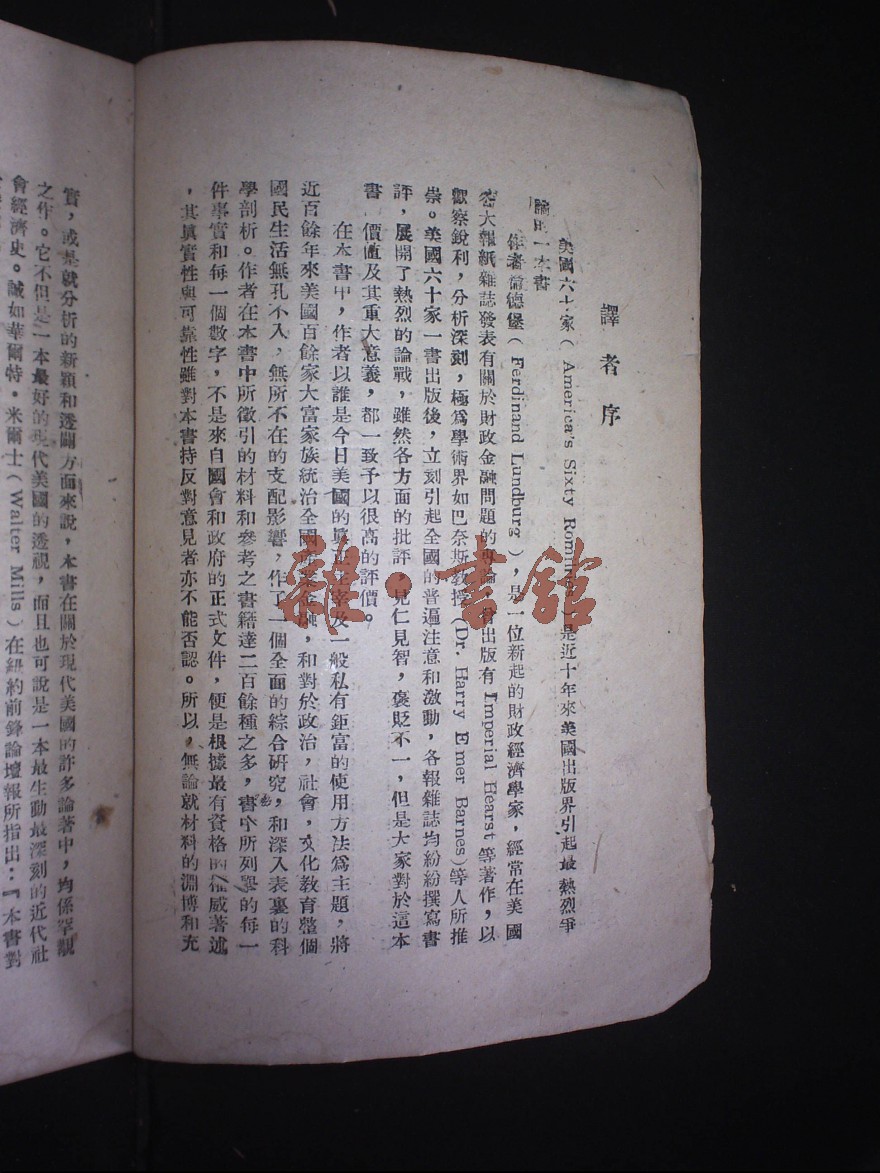 譯者序
美國六十家（America's Sixty Families）是近十年來美國出版界引起最熱烈爭
論的一本書
作者倫德堡（Ferdinand Lundburg），是一位新起的財政經濟學家，經常在美國
各大報紙雜誌發表有關於財政金融問題的專論，曾出版有Imperial Hearst等著作，以
觀察銳利，分析深刻，極爲學術界如巴奈斯教授（Dr. Harry Emer Barnes）等人所推
崇。美國六十家一書出版後，立刻引起全國的普遍注意和激動，各報雜誌均紛紛撰寫書
評，展開了熱烈的論戰，雖然各方面的批評，見仁見智，褒貶不一，但是大家對於這本
書 價值及其重大意義，都一致予以很高的評價。
在本書中，作者以誰是今日美國的眞正主宰及一般私有鉅富的使用方法爲主題，將
近百餘年來美國百餘家大富家族統治全國 業金融，和對於政治，社會，文化教育整個
國民生活無孔不入，無所不在的支配影響，作了一個全面的綜合研究，和深入表裏的科
學剖析。作者在本書中所徵引的材料和參考之書籍達二百餘種之多，書中所列舉的每一
件事實和每一個數字，不是來自國會和政府的正式文件，便是根據最有資格的權威著述
，其眞實性與可靠性雖對本書持反對意見者亦不能否認。所以，無論就材料的淵博和充
實，或是就分析的新穎和透闢方面來說，本書在關於現代美國的許多論著中，均係罕覯
之作。它不但是一本最好的現代美國的透視，而且也可說是一本最生動最深刻的近代社
會經濟史。誠如華爾特·米爾士（Walter Mills）在紐約前鋒論壇報所指出：『本書對
雜·書館